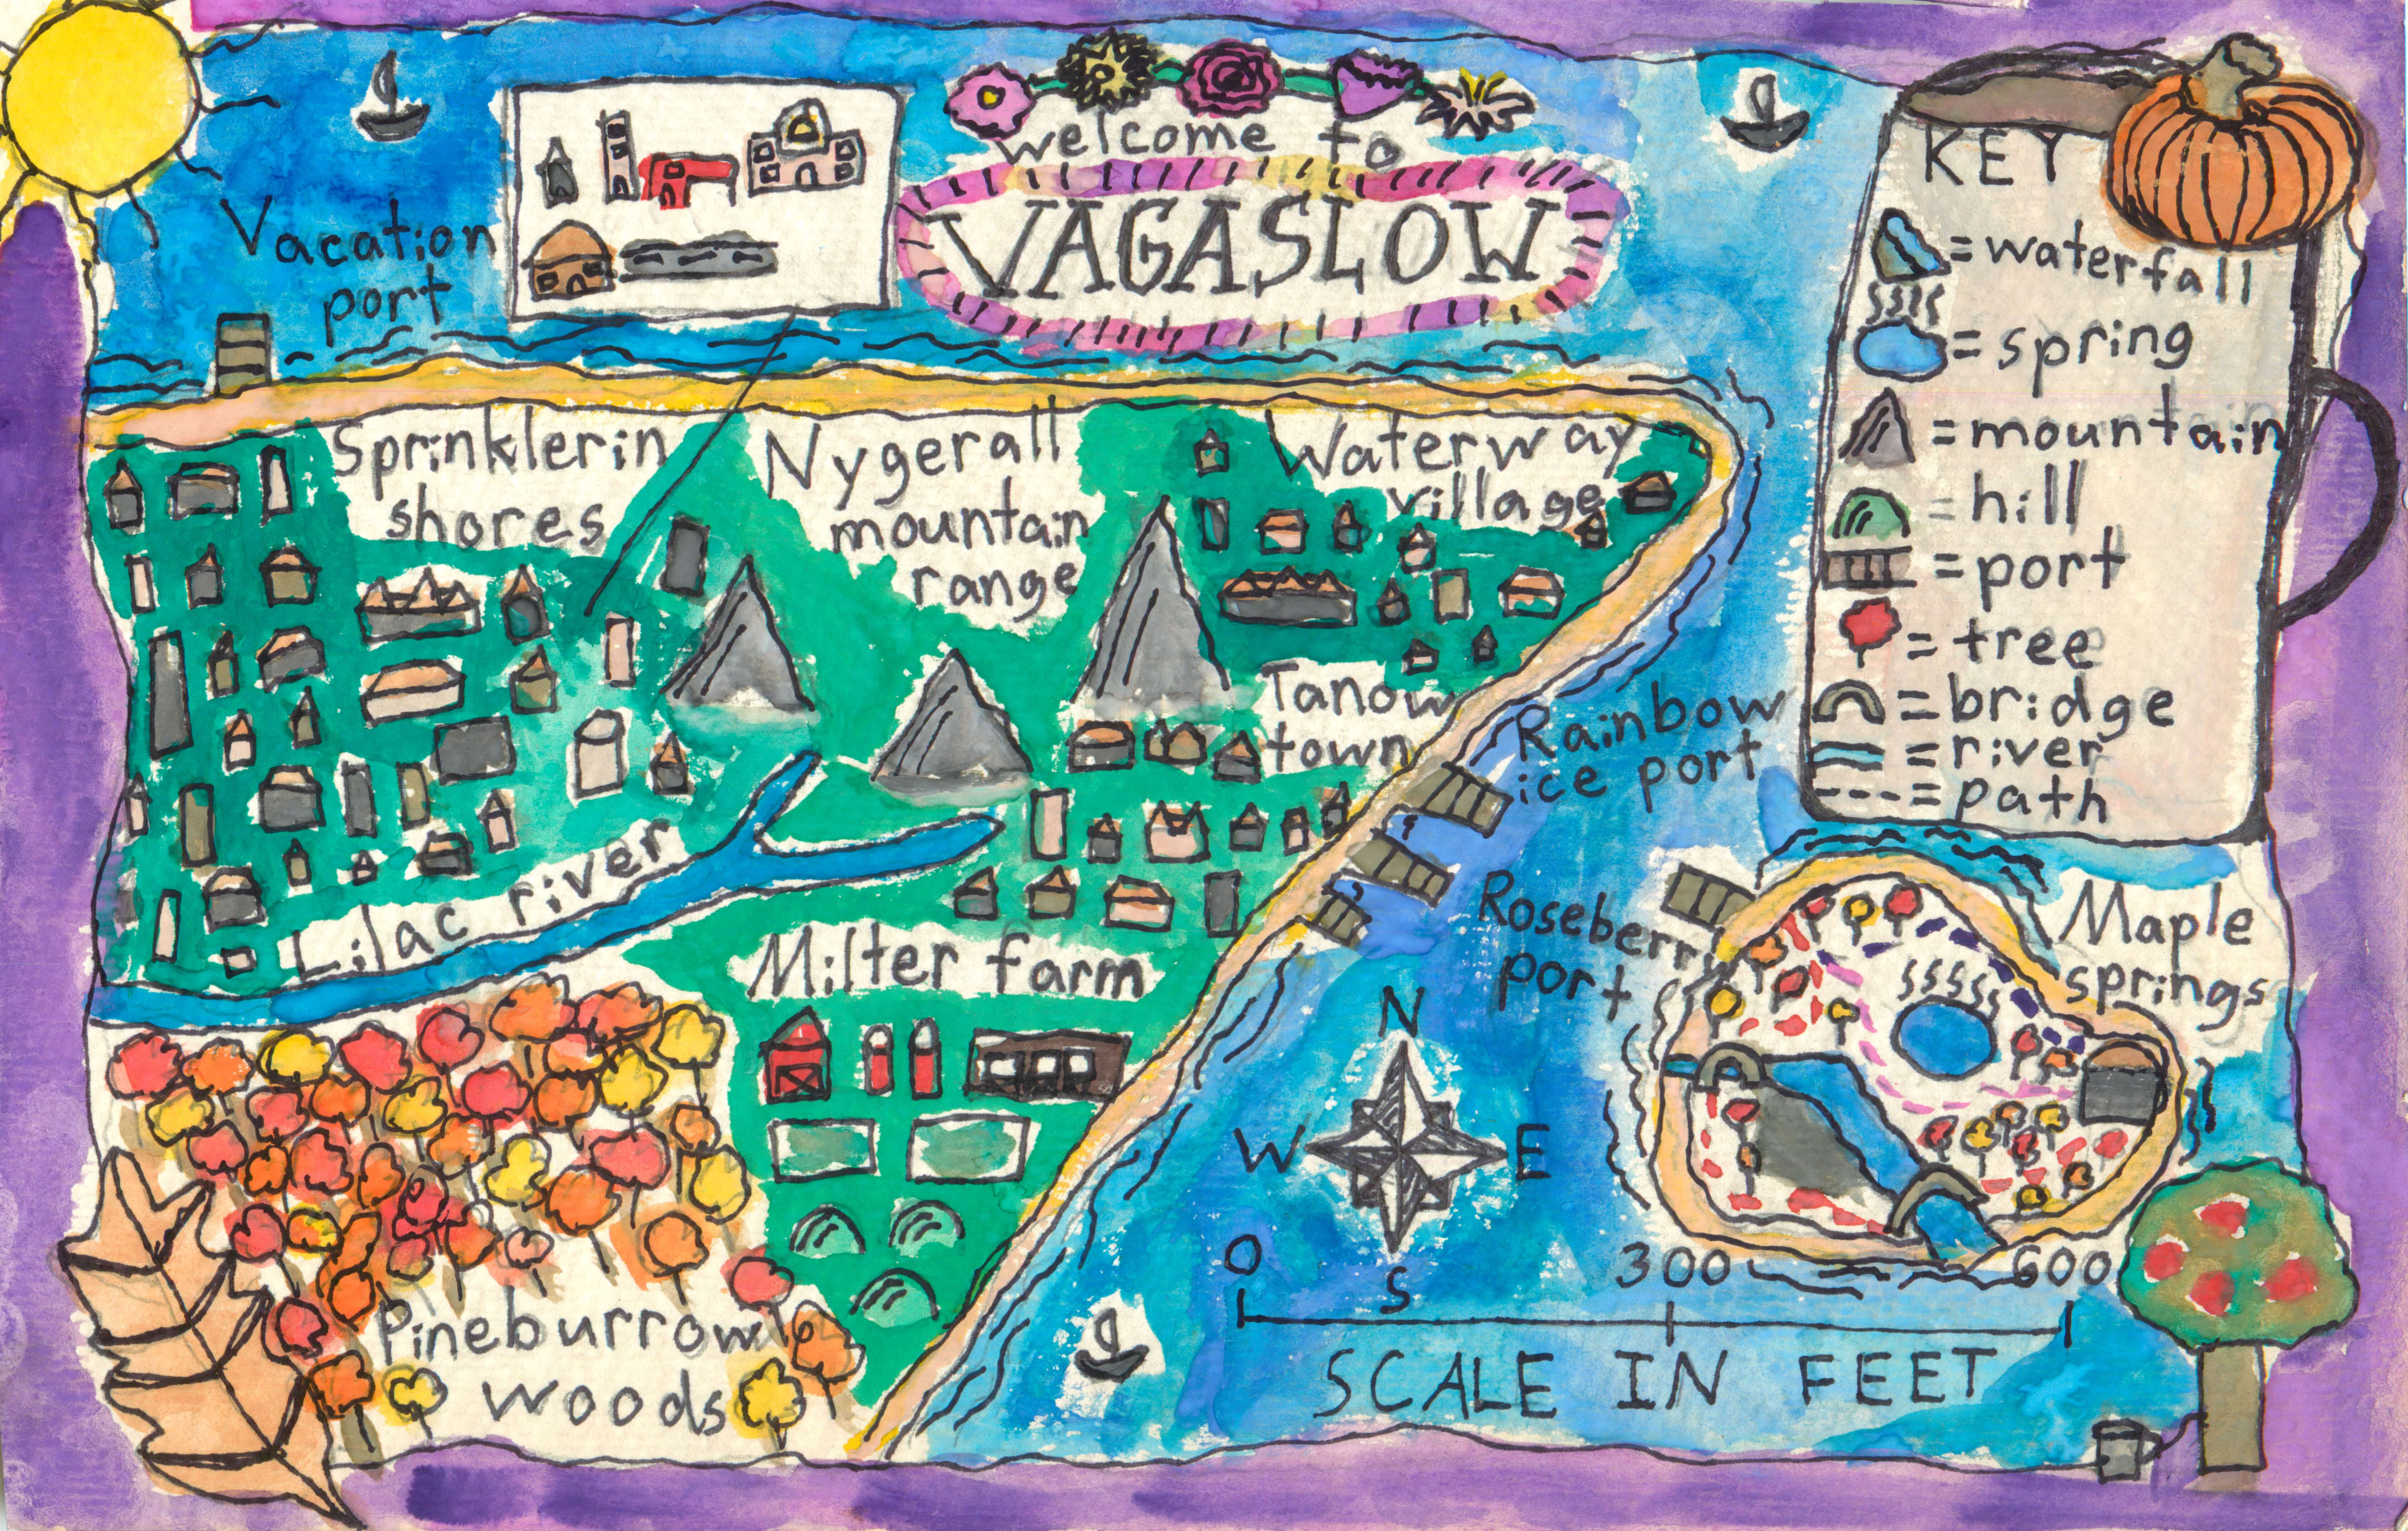 welcome to
VAGASLOW
Vacation
port
KEY
= waterfall
= spring
= mountain
= hill
= port
= tree
= bridge
= river
= path
Sprinklerin
shores
Nygerall
mountain
range
Waterway
village
Tanow
town
Rainbow
ice port
Lilac river
Milter farm
Roseberry
port
Maple
springs
N
W E
S
Pineburrow
woods
0 300 600
SCALE IN FEET